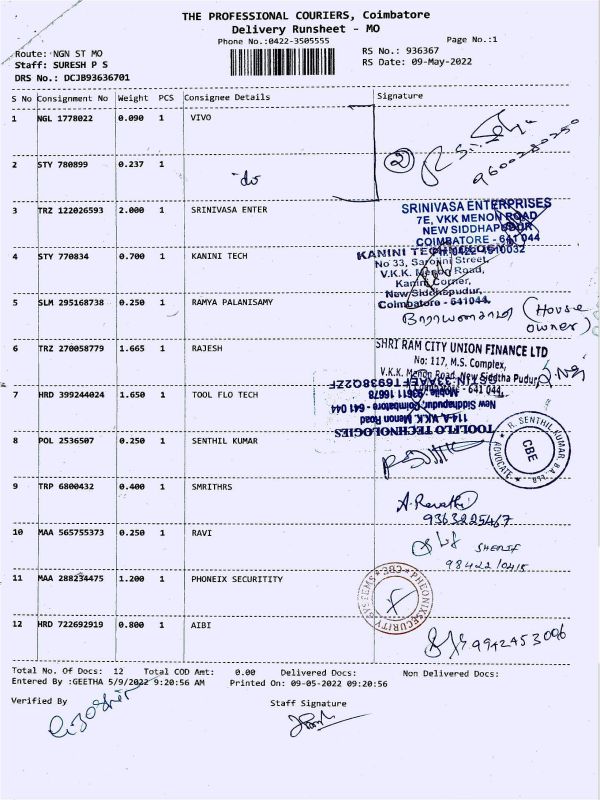 THE PROFESSIONAL COURIERS, Coimbatore
Delivery Runsheet - MO
Phone No.:0422-3505555
Page No.:1
Route: NGN ST MO
RS No.: 936367
Staff: SURESH P S
RS Date: 09-May-2022
DRS No.: DCJB93636701
S No Consignment No Weight PCS Consignee Details Signature
1 NGL 1778022 0.090 1 VIVO
2
9600230250
2 STY 780899 0.237 1 -do
3 TRZ 122026593 2.000 1 SRINIVASA ENTER
SRINIVASA ENTERPRISES
7E, VKK MENON ROAD
NEW SIDDHAPUDUR
COIMBATORE - 641 044
4 STY 770834 0.700 1 KANINI TECH
KANINI TECHNOLOGY
No 33, Sarojini Street,
V.K.K. Menon Road,
Kanini Corner,
New Siddhapudur,
Coimbatore - 641044.
5 SLM 295168738 0.250 1 RAMYA PALANISAMY
(House owner)
6 TRZ 270058779 1.665 1 RAJESH
SHRI RAM CITY UNION FINANCE LTD
No: 117, M.S. Complex,
V.K.K. Menon Road, New Siddha Pudur,
Coimbatore - 641 044.
7 HRD 399244024 1.650 1 TOOL FLO TECH
TOOLFLO TECHNOLOGIES
114-A, V.K.K. Menon Road
New Siddhapudur, Coimbatore - 641 044
Mobile: 93611 16678
8 POL 2536507 0.250 1 SENTHIL KUMAR
R. SENTHIL KUMAR B.A., LLB
CBE
ADVOCATE
9 TRP 6800432 0.400 1 SMRITHRS
A. Revathi
9363225467
10 MAA 565755373 0.250 1 RAVI
SHERIF
11 MAA 288234475 1.200 1 PHONEIX SECURITITY
PHEONIX SECURITY SYSTEMS
12 HRD 722692919 0.800 1 AIBI
9942453096
Total No. Of Docs: 12 Total COD Amt: 0.00 Delivered Docs: Non Delivered Docs:
Entered By :GEETHA 5/9/2022 9:20:56 AM Printed On: 09-05-2022 09:20:56
Verified By
Staff Signature